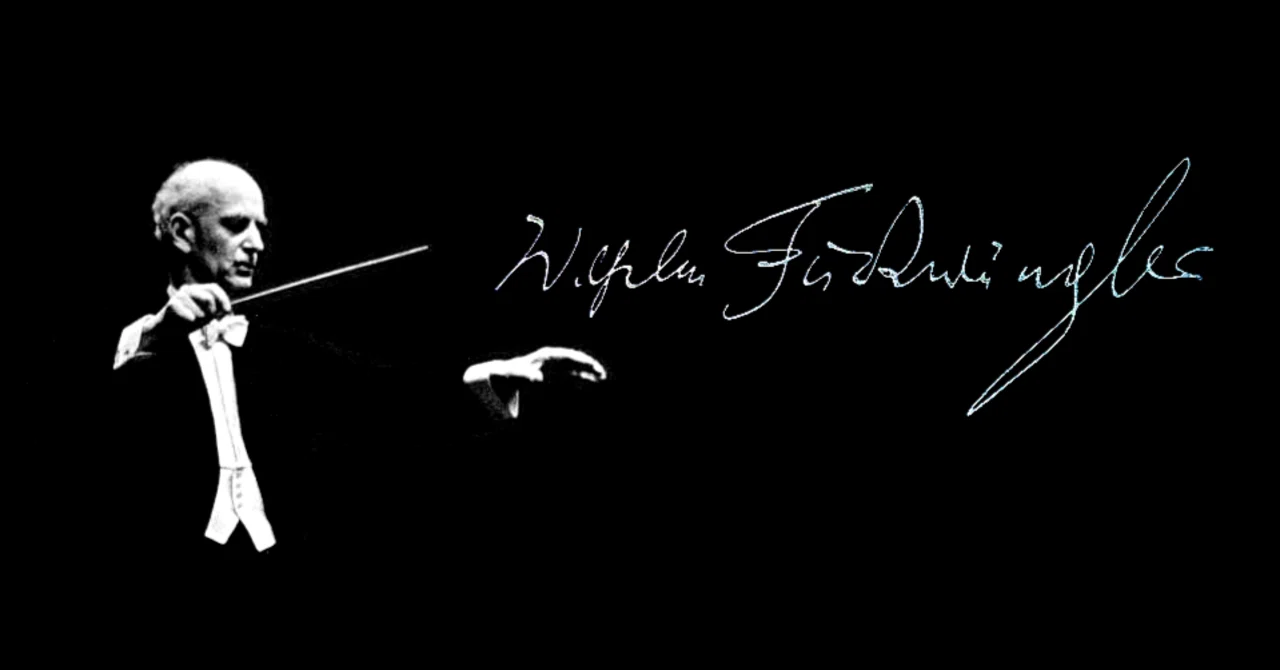 Wilhelm Furtwängler